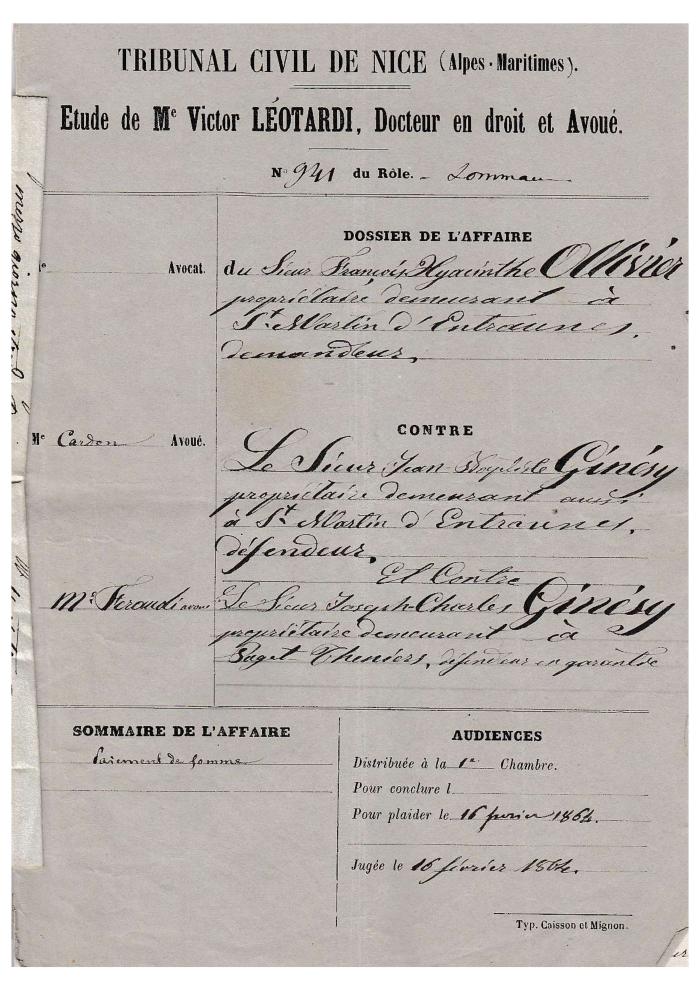 TRIBUNAL CIVIL DE NICE (Alpes-Maritimes).
Etude de Me Victor LÉOTARDI, Docteur en droit et Avoué.
No 941 du Rôle. -
DOSSIER DE L'AFFAIRE
Avocat.
du Sieur François Hyacinthe Ollivier
propriétaire demeurant à
St Martin d'Entraunes,
demandeur,
CONTRE
Me Cardon Avoué.
Le Sieur Jean-Baptiste Ginésy
propriétaire demeurant aussi
à St Martin d'Entraunes,
défendeur,
Et Contre
Me Feraudi avoué
Le Sieur Joseph-Charles Ginésy
propriétaire demeurant à
Puget Theniers, défendeur en garantie
SOMMAIRE DE L'AFFAIRE
Paiement de somme
AUDIENCES
Distribuée à la 1e Chambre.
Pour conclure l
Pour plaider le 16 fevrier 1864.
Jugée le 16 février 1864.
Typ. Caisson et Mignon.